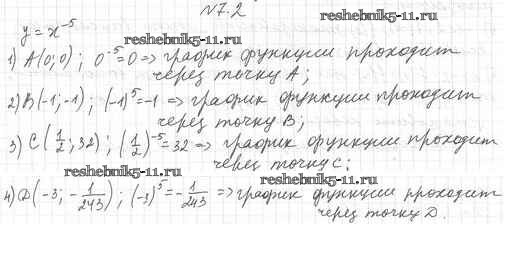 №7.2
reshebnik5-11.ru
y = x⁻⁵
reshebnik5-11.ru
1) A(0; 0); 0⁻⁵=0 => график функции проходит
через точку A;
2) B(-1; -1); (-1)⁵=-1 => график функции проходит
через точку B;
3) C(1/2; 32); (1/2)⁻⁵=32 => график функции проходит
через точку C;
reshebnik5-11.ru
reshebnik5-11.ru
4) D(-3; -1/243); (-3)⁵=-1/243 => график функции проходит
через точку D.